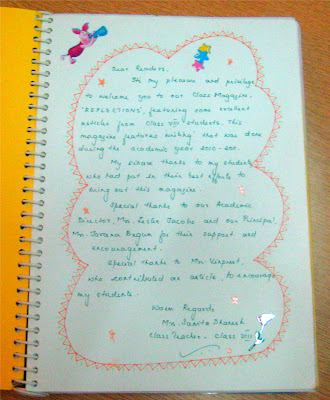 Dear Readers,
It's my pleasure and privilege
to welcome you to our Class Magazine,
'REFLECTIONS', featuring some excellent
articles from Class VIII students. This
magazine features writing that was done
during the academic year 2010-2011.
My sincere thanks to my students
who had put in their best efforts to
bring out this magazine.
Special thanks to our Academic
Director, Mr. Lester Jacobs and our Principal,
Mrs. Begum for their support and
encouragement.
Special thanks to Mrs.
who contributed an article, to encourage
my students.
Warm Regards
Mrs.
Class Teacher - Class VIII